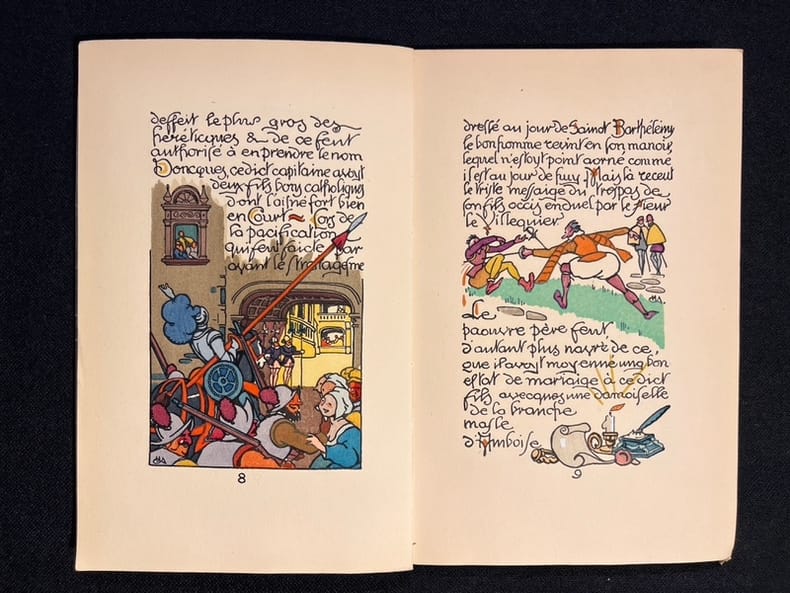 deffeit le plus gros des
héréticques & de ce feut
authorisé à en prendre le nom
Doncques, cedict capitaine avoyt
deux fils bons catholiques
dont l'aisné fort bien
en Court ~ Lors de
la pacification
qui feut faicte par
avant le stratageme
8
dressé au jour de Sainct Barthélemy
le bonhomme revint en son manoir,
lequel n'estoyt point aorné comme
il est au jour de huy. Mais là receut
le triste messaige du trespas de
son fils occis en duel par le sieur
de Villequier
Le
paouvre père feut
d'autant plus navré de ce,
que il avoyt moyenné ung bon
estat de mariaige à ce dict
fils avecques une damoiselle
de la branche
masle
d'Amboise
9